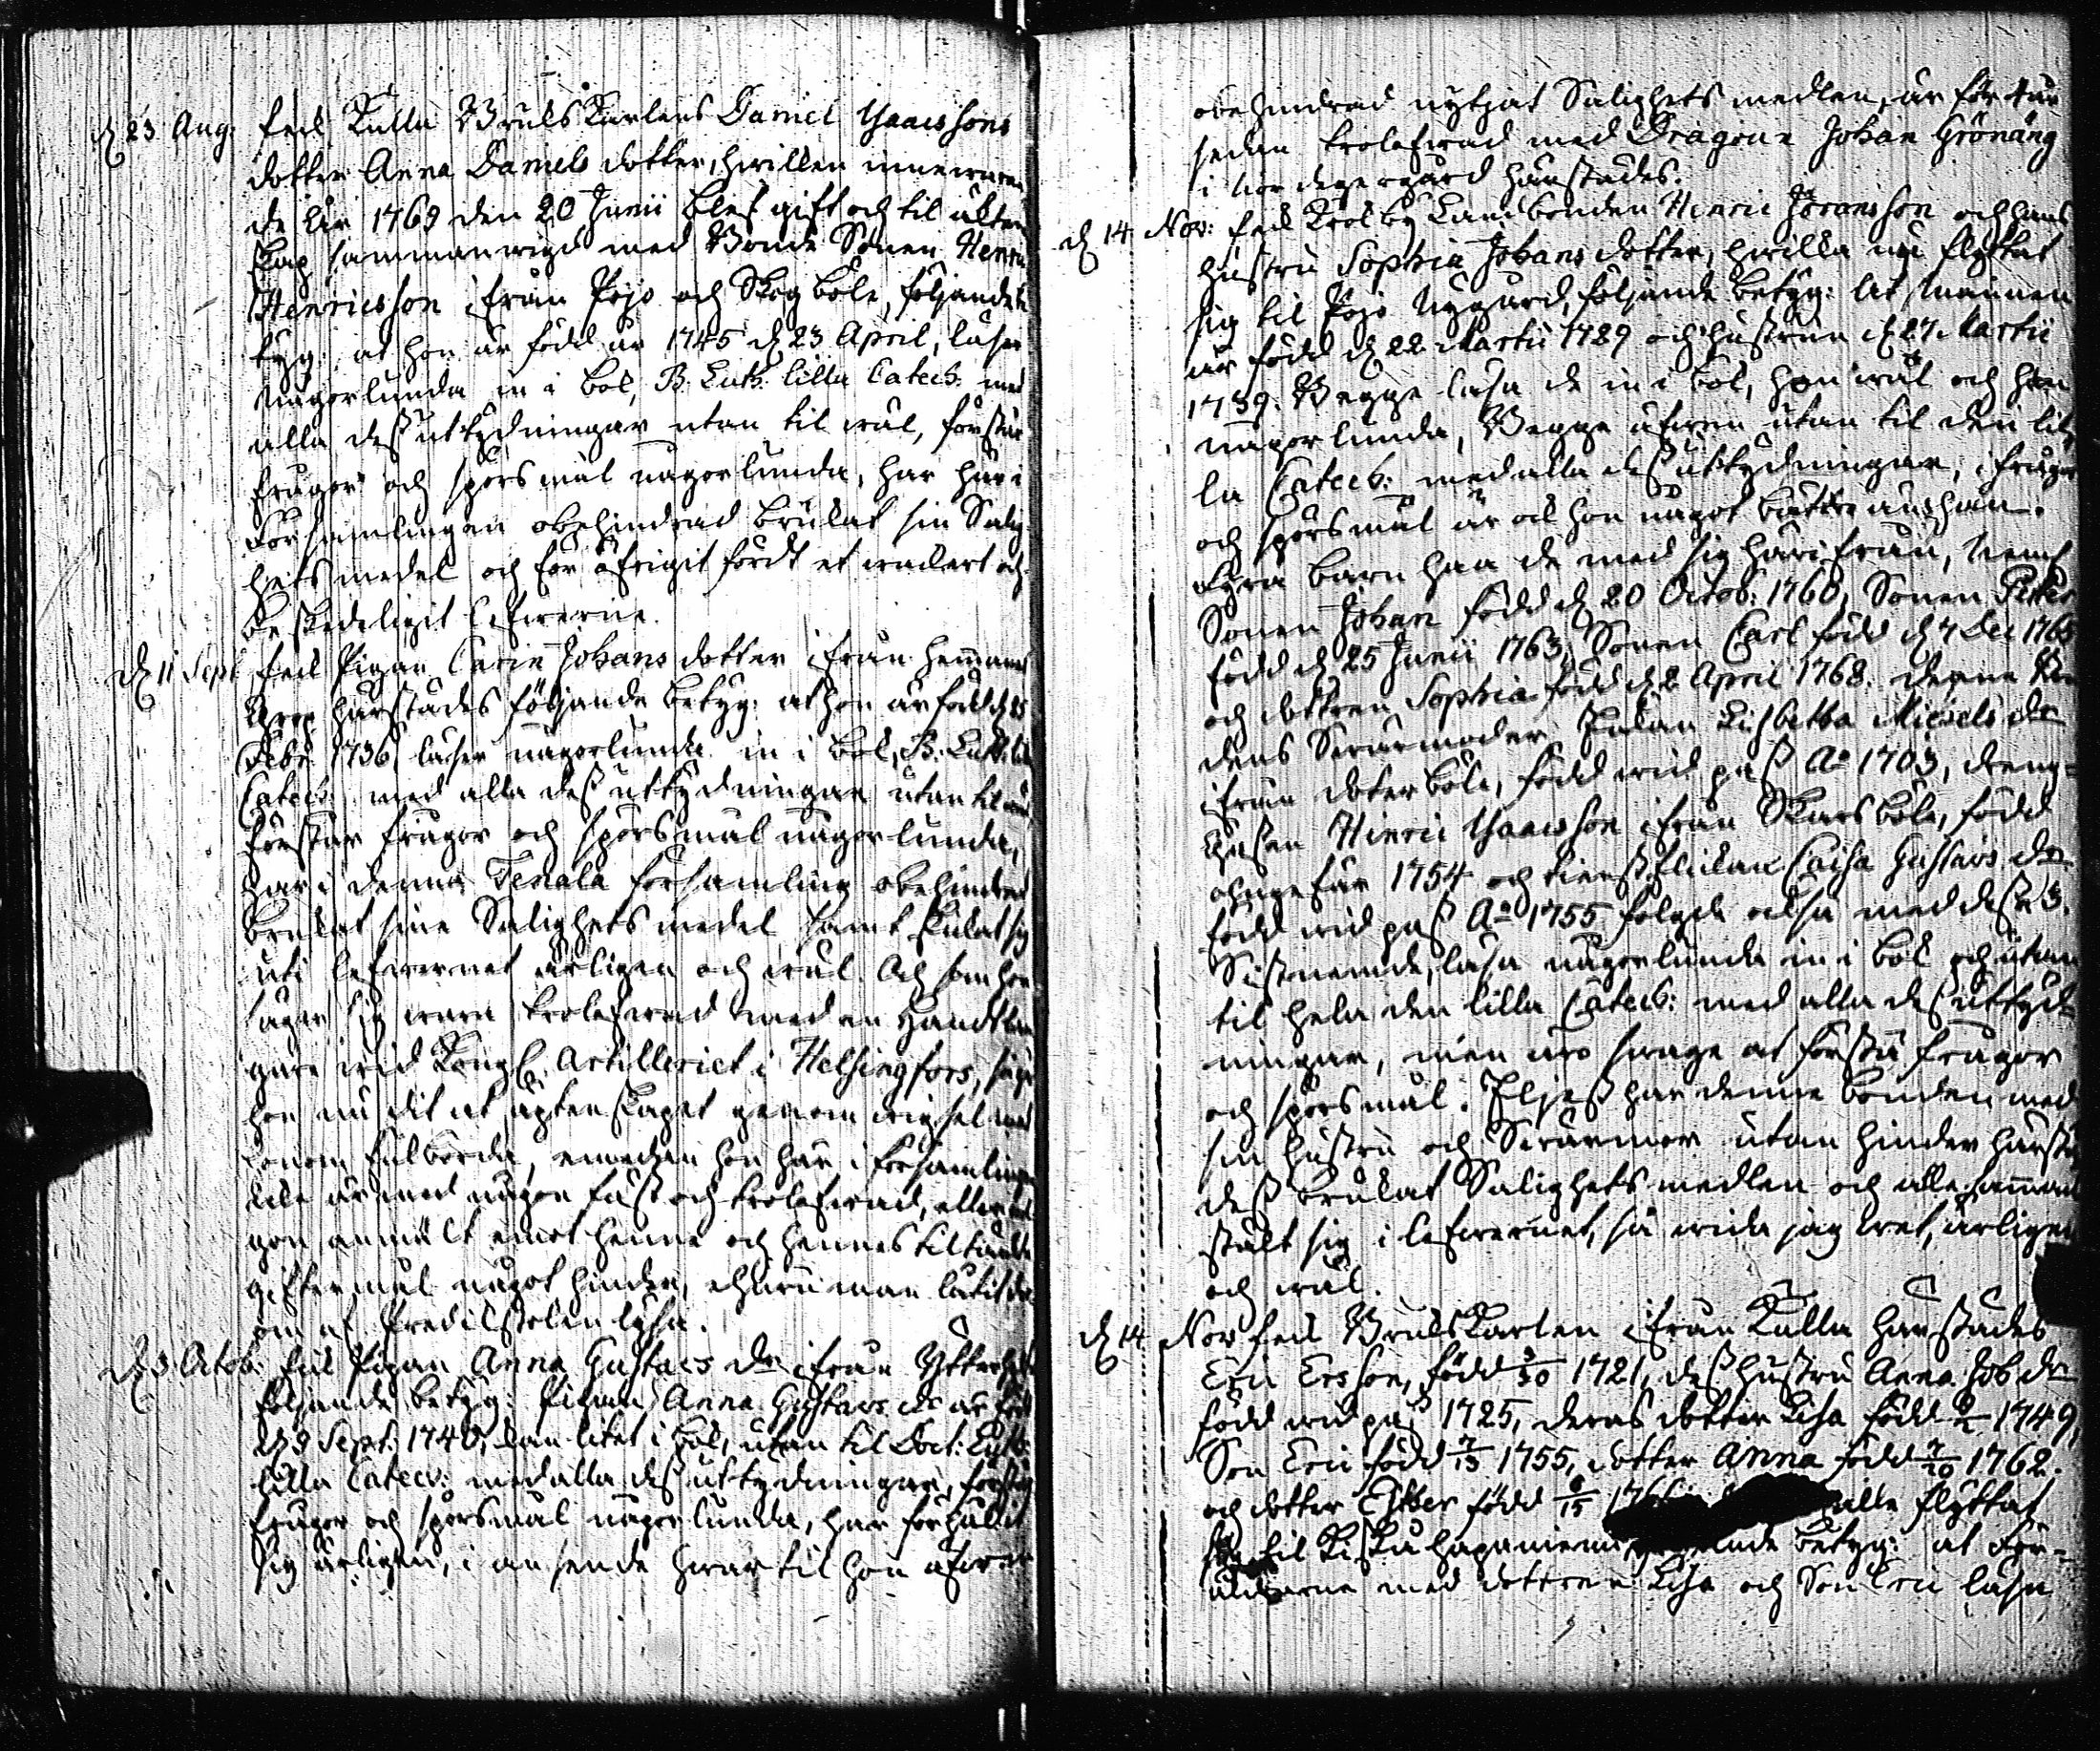 d 23 Aug. feck Kulla Bruks Karlens Daniel Isaacssons
dotter Anna Daniels dotter, hwilken innewaran
de åhr 1769 den 20 Junii blef gift och til äkten
skap sammanwigd med Bonde Sonen Henric
Henricsson ifrån Pojo och Skogböle, följande be
tyg: at hon är född år 1745 d 23 April, läser
någorlunda in i bok, B. Luth. lilla Catech. med
alla dess uttydningar utan til wäl, förstår
frågor och spörsmål någorlunda, har här i
Församlingen obehindrad brukat sin Salig
hets medel och för öfrigit fördt et wackert och
beskedeligit lefwerne.
d 11 Sept feck Pigan Carin Johans dotter ifrån hemmanet
härstädes följande betyg: at hon är född d 25
Febr. 1736, läser någorlunda in i bok, B. Luth. lilla
Catech. med alla dess uttydningar utan til wäl,
förstår frågor och spörsmål någorlunda,
har i denna Tenala församling obehindrad
brukat sine Salighets medel samt skickat sig
uti lefwernet ärligen och wäl. Och som hon
säger sig wara trolofwad med en Handtlan
gare wid Kongl. Artilleriet i Helsingfors,
hon nu dit at ägtenskapet genom wigsel med
honom fulborda, emedan hon här i församlingen
icke är med någon fäst och trolofwad, eller nå
gon anmält emot henne och hennes tiltänkte
giftermål något hinder, ehuru man låtit der
om af Predikstolen lysa.
d 3 Octob: fick Pigan Anna Gustavs dr ifrån
följande betyg: Pigan Anna Gustavs dr är född
d 9 Sept. 1740, kan litet i bok, utan til Doct: Luth:
lilla Catech: med alla dess uttydningar, förstår
frågor och spörsmål någorlunda, har förhållit
sig ärligen, i anseende hwartil hon äfwen
obehindrad nytjat Salighets medlen, är för 4 år
sedan trolofwad med Dragoun Johan Grönäng
i härstädes.
d 14 Nov: feck Trolby Landbonden Henric Göransson och hans
hustru Sophia Johans dotter, hwilka nu flyttat
sig til Pojo Nygård, följande betyg: At Mannen
är född d 22 Martii 1729 och hustrun d 27 Martii
1739. Begge läsa de in i bok, han wäl och hon
någorlunda, Begge äfwen utan til den lil
la Catech: med alla dess uttydningar, i frågor
och spörsmål är ock hon något bättre än han.
Fyra barn haa de med sig härifrån, neml
Sonen Johan född d 20 Octob: 1760, Sonen Petter
född d 25 Junii 1763, Sonen Carl född d 4 Dec 1765
och dottren Sophia född d 2 April 1768. denne Bon
dens Swärmoder Enkan Lisbetha Michels dr
ifrån dotterböle, född wid pass Ao 1703, dreng
Henric Isaacsson ifrån Skarsböle, född
ohngefär 1754 och tienstflickan Caisa Gustavs dr
född wid pass Ao 1755 följde också med. desse 3
Sistnemde, läsa någorlunda in i bok och utan
til hela den lilla Catech: med alla dess uttyd
ningar, men äro swage at förstå frågor
och spörsmål. Eljest har denne bonden med
sin hustru och Swärmor utan hinder härstä
des brukat Salighets medlen och allesamman
stält sig i lefwernet, så wida jag wet, ärligen
och wäl.
d 14 Nov feck Bruks Karlen ifrån Kulla härstädes
Eric Ersson, född 3/30 1721, dess hustru Anna Joh dr
född wid pass 1725, deras dotter Lisa född 1749,
Son Eric född 7/13 1755, dotter Anna född 7/20 1762.
och dotter Esther född 8/15 alle flyttat
sig til Kisko betyg: at För-
äldrarne med dottren Lisa och Son Eric läsa